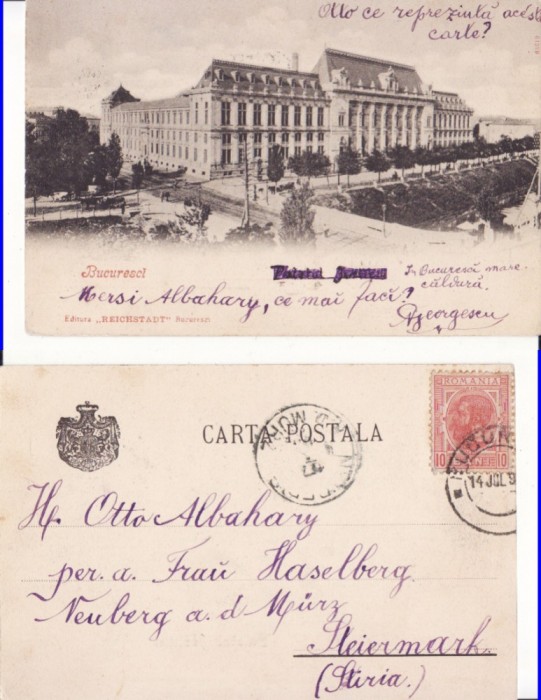 Otto ce reprezintă această
carte?
Bucuresci
În Bucuresci mare
căldură.
Mersi Albahary, ce mai faci?
Georgescu
Editura „REICHSTADT" Bucuresci
CARTA POSTALA
ROMANIA
10 10
14 JUL 9
H. Otto Albahary
per. a. Frau Haselberg
Neuberg a. d Mürz
Steiermark
(Stiria.)